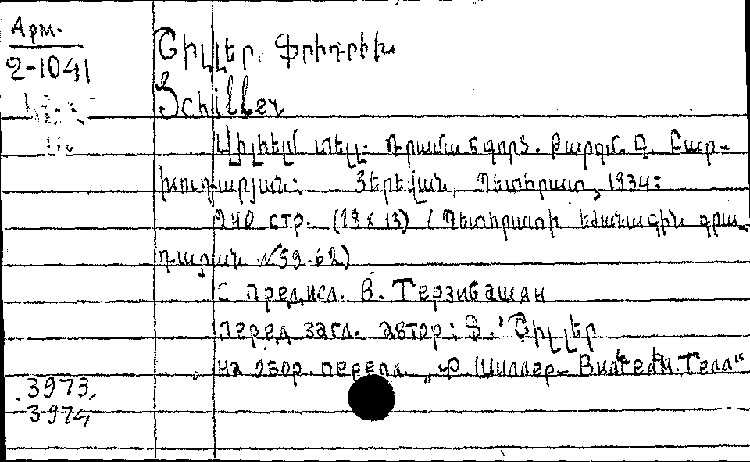 Арм.
2-1041
Շիլլեր, Ֆրիդրիխ
Schiller
Վիլհելմ տելլ: Դրամա 5 գործ. Թարգմ. Գ. Բար-
խուդարյան: Յերեվան, Պետհրատ, 1934:
240 стр. (19 x 13) (Պետհրատի եժանագին գրա-
դարան №59-62)
С предисл. В. Терзибашян
Перед загл. автор: Ֆ. Շիլլեր
На обор. перепл. „Ф. Шиллер - Вильгельм Телль“
3973,
3974